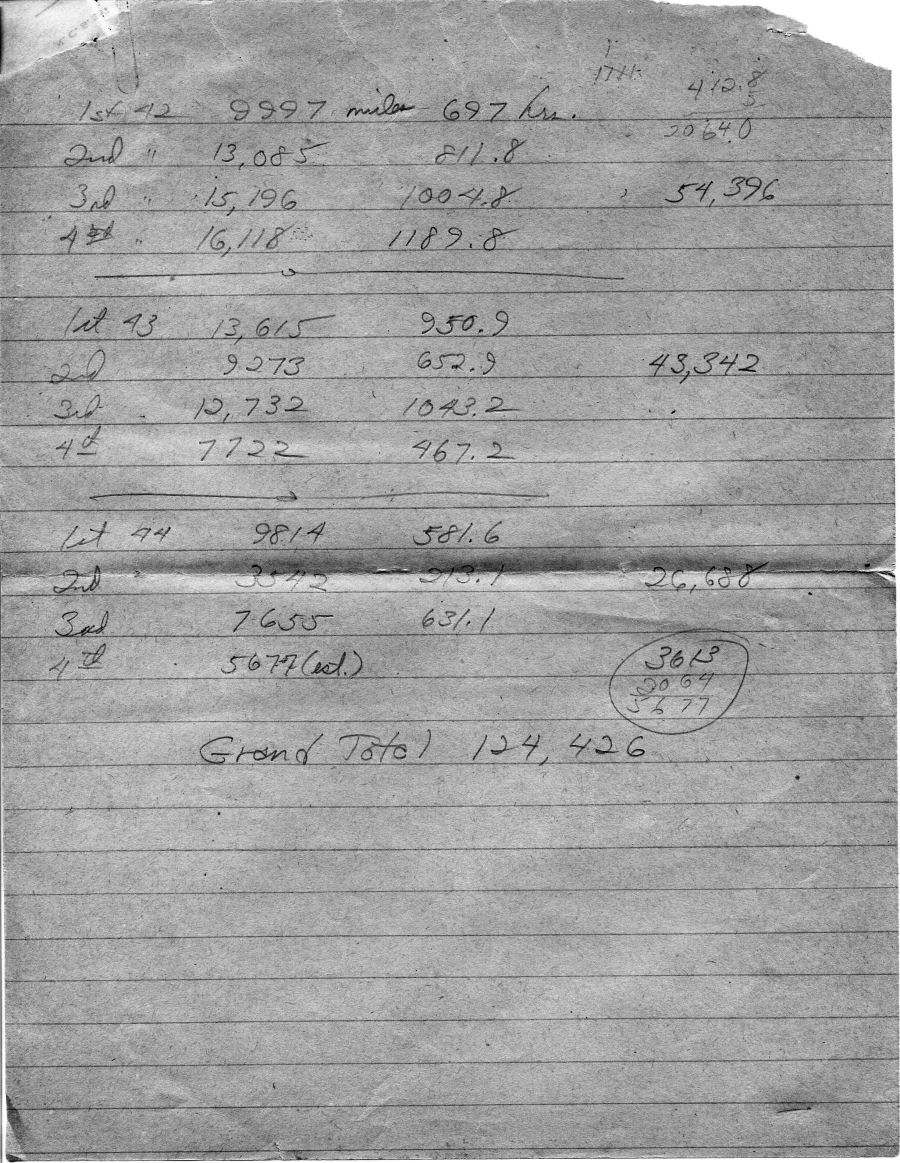 412.8
5
2064.0
1st 42 9997 miles 697 hrs.
2nd " 13,085 811.8
3rd " 15,196 1004.8 54,396
4th " 16,118 1189.8
1st 43 13,615 950.9
2nd 9273 652.9 43,342
3rd " 12,732 1043.2
4th 7722 467.2
1st 44 9814 581.6
2nd " 3542 213.1 26,688
3rd 7655 631.1
4th 5677 (est.)
3613
2064
5677
Grand Total 124,426